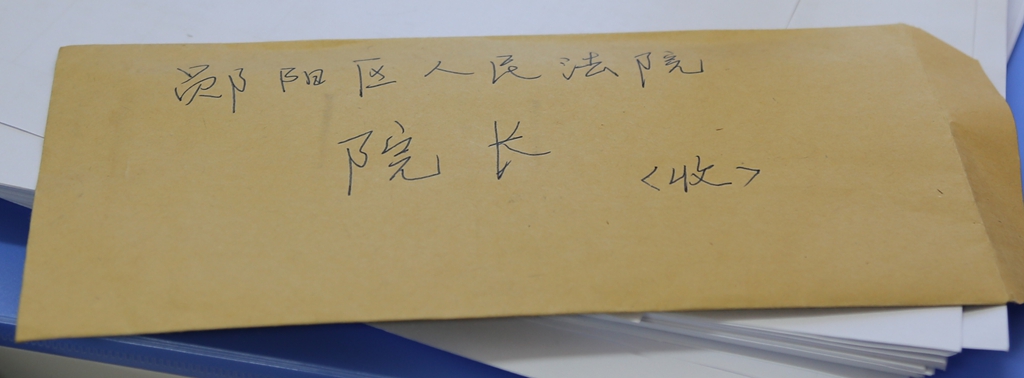 郧阳区人民法院
院长
<收>